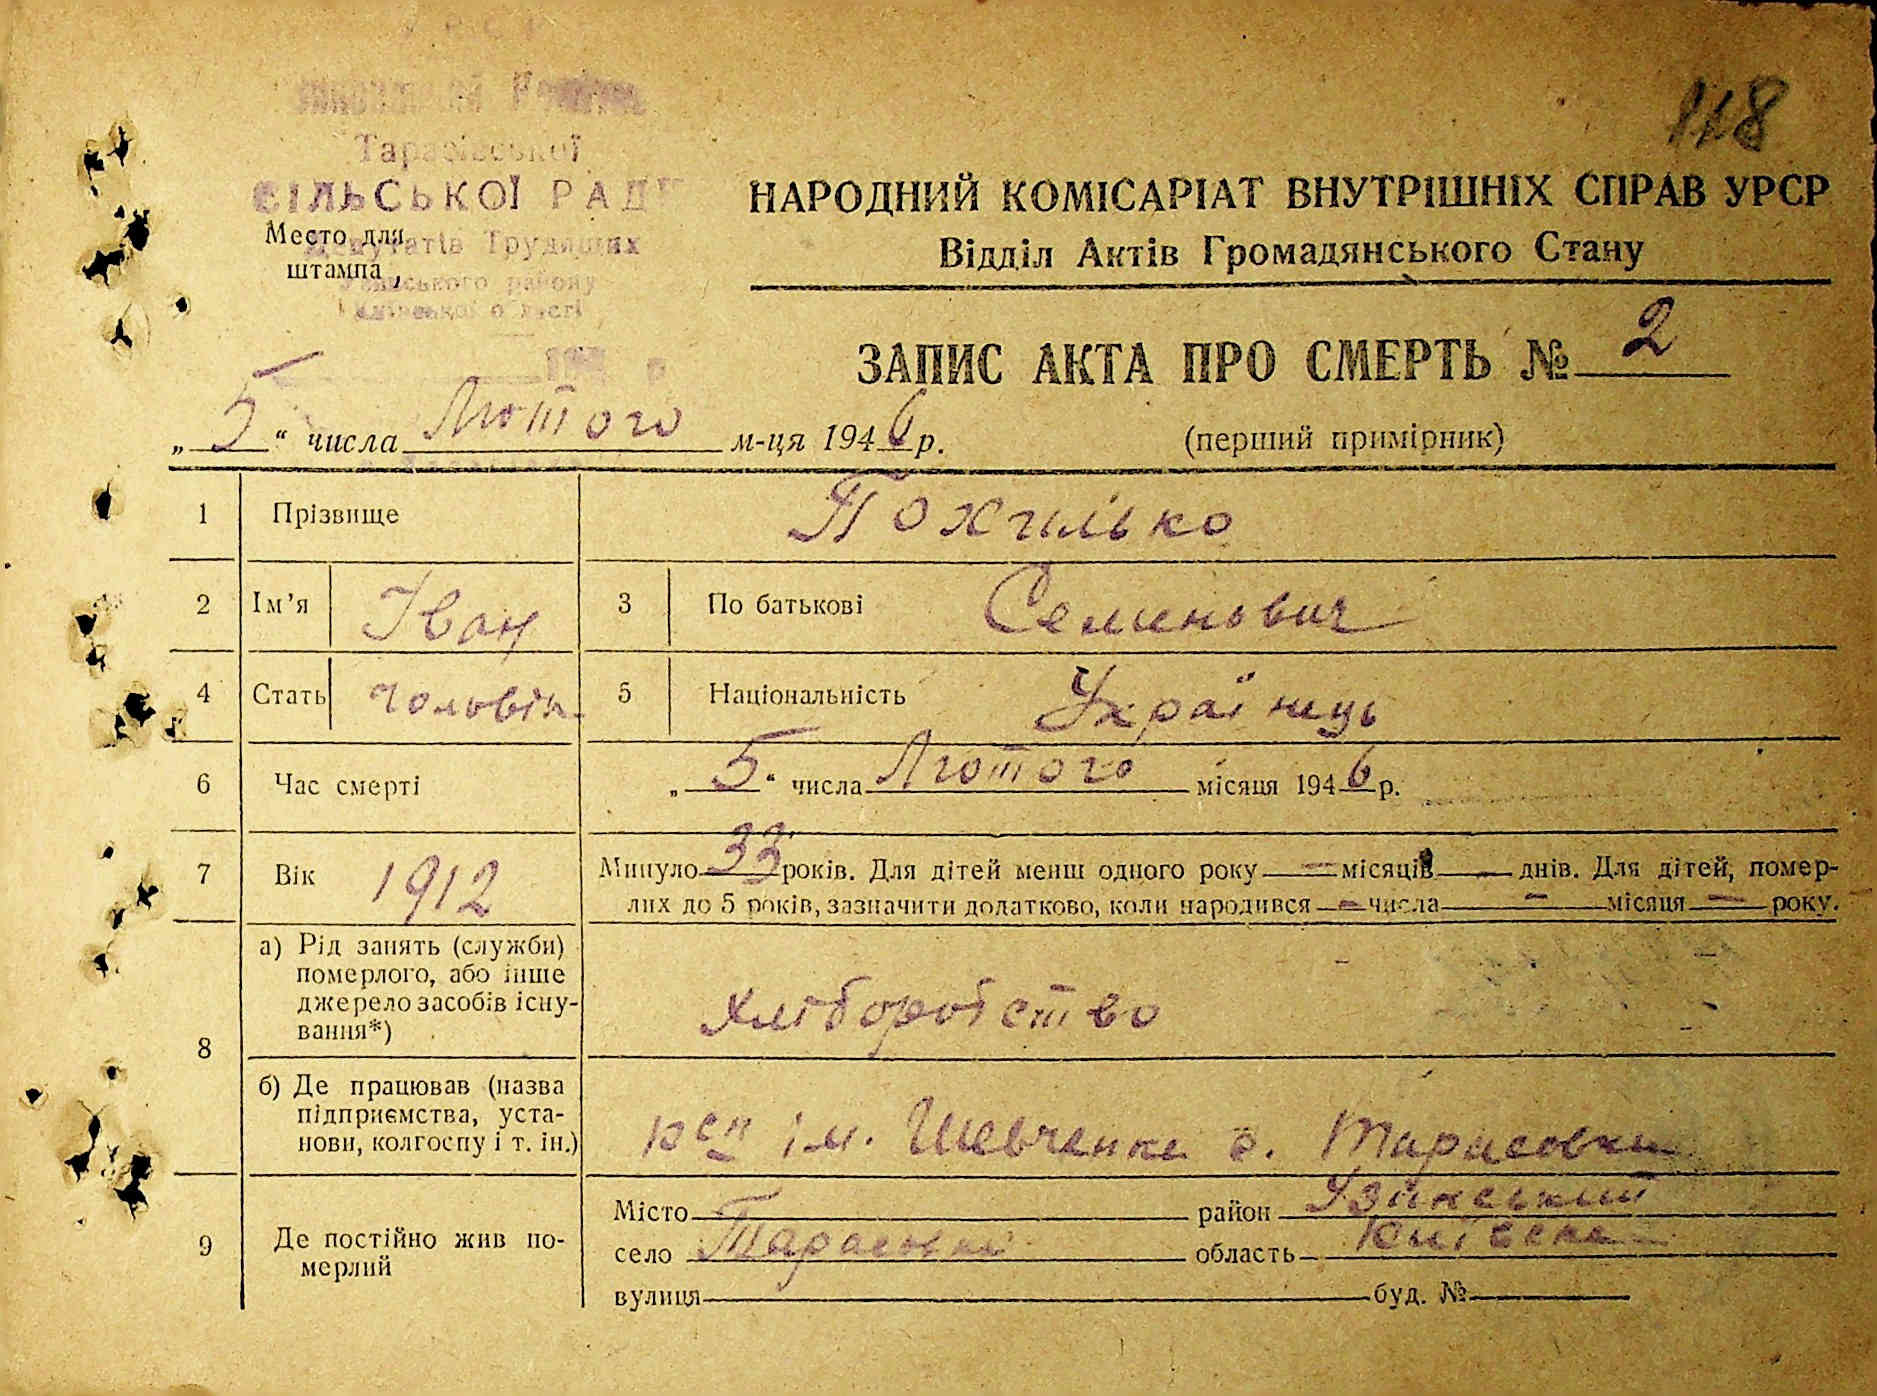 118
Тарасівської
СІЛЬСЬКОЇ РАДИ
Депутатів Трудящих
району
Київської області
Место для
штампа
НАРОДНИЙ КОМІСАРІАТ ВНУТРІШНІХ СПРАВ УРСР
Відділ Актів Громадянського Стану
ЗАПИС АКТА ПРО СМЕРТЬ № 2
„ 5 “ числа Лютого м-ця 1946 р.
(перший примірник)
1 Прізвище Похилько
2 Ім’я Іван 3 По батькові Семенович
4 Стать чоловік 5 Національність Українець
6 Час смерті „ 5 “ числа Лютого місяця 1946 р.
7 Вік 1912 Минуло 33 років. Для дітей менш одного року — місяців — днів. Для дітей, помер-
лих до 5 років, зазначити додатково, коли народився — числа — місяця — року.
8 а) Рід занять (служби)
померлого, або інше
джерело засобів існу-
вання*)
хліборобство
б) Де працював (назва
підприємства, уста-
нови, колгоспу і т. ін.)
ім. Шевченка с. Тарасовка
9 Де постійно жив по-
мерлий
Місто район Узинський
село Тарасовка область Київська
вулиця буд. №